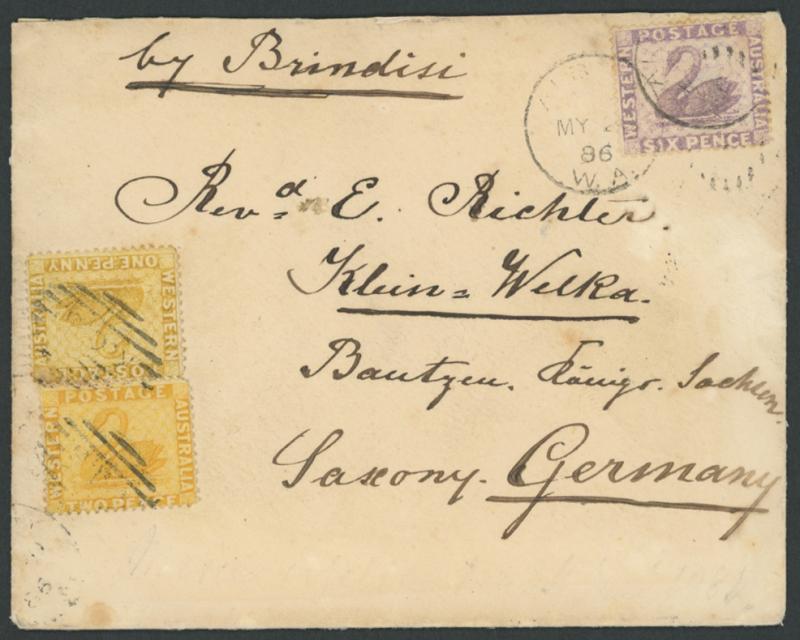 by Brindisi
POSTAGE
WESTERN
AUSTRALIA
SIX PENCE
MY
86
W.A.
Revd. E. Richter.
Klein=Welka.
Bautzen. Königr. Sachsen.
Saxony. Germany
ONE PENNY
WESTERN
AUSTRALIA
POSTAGE
WESTERN
AUSTRALIA
TWO PENCE